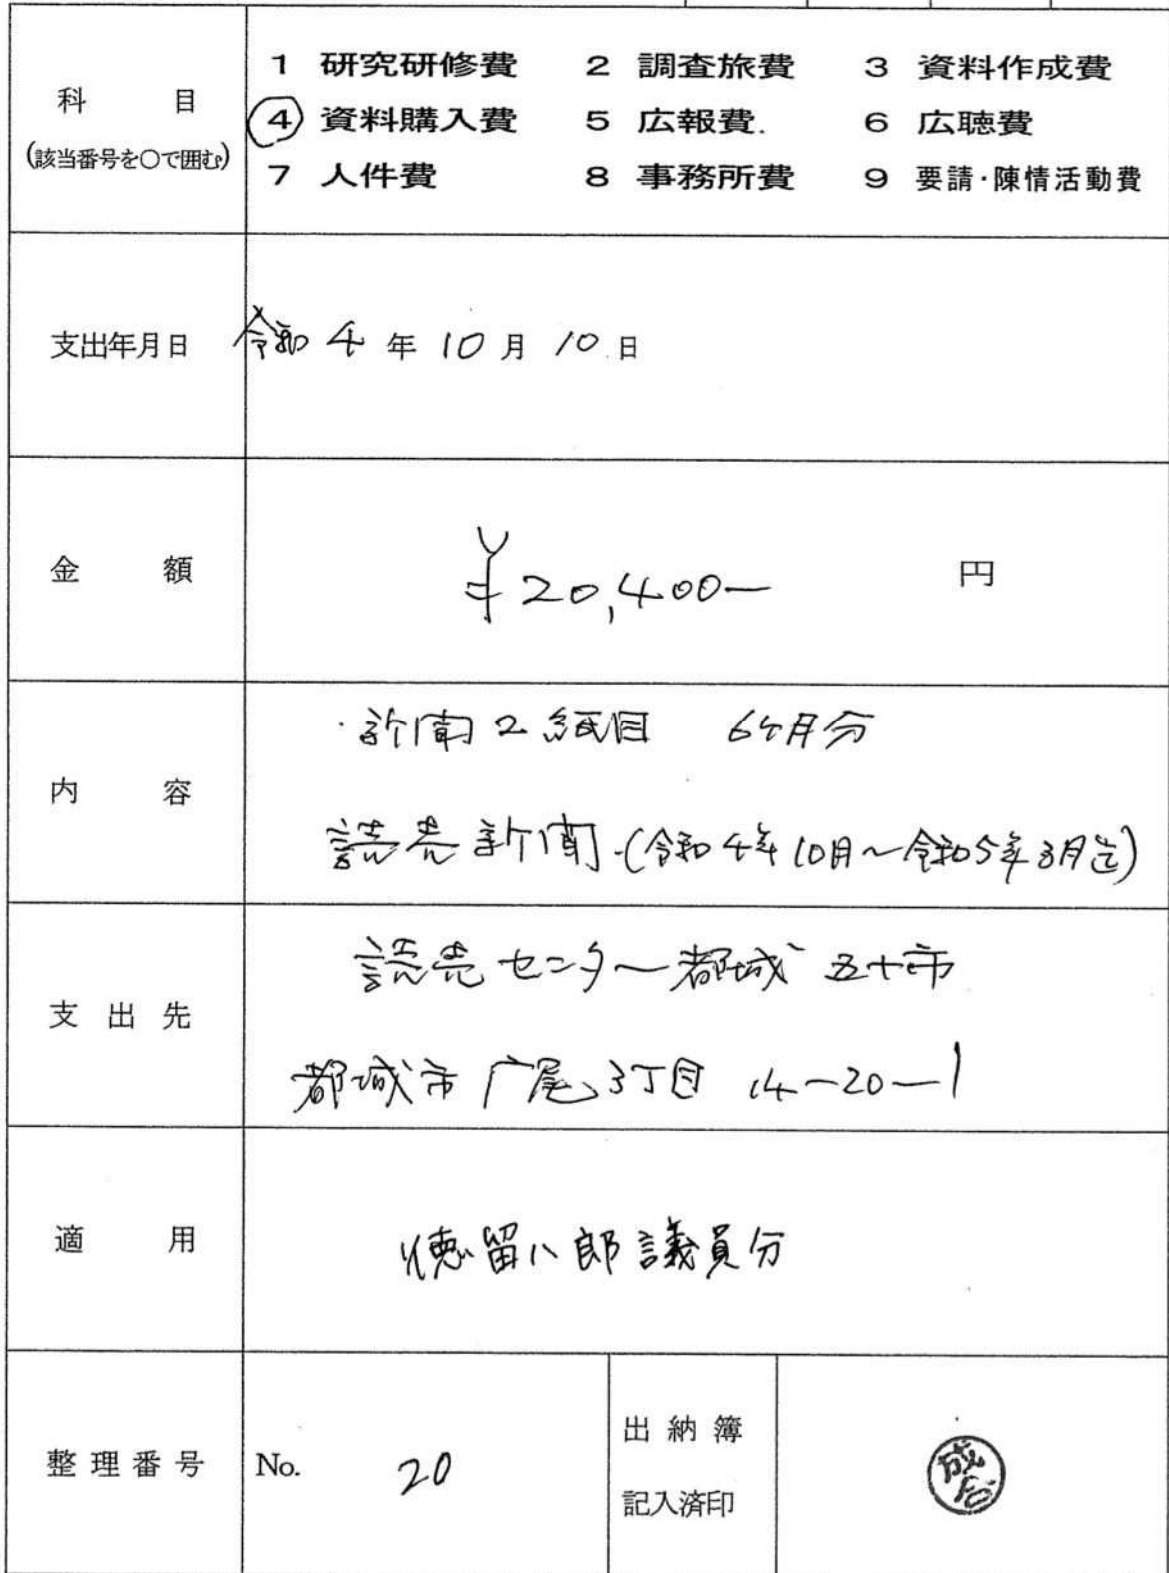 科 目
(該当番号を○で囲む。)
1 研究研修費 2 調査旅費 3 資料作成費
4 資料購入費 5 広報費 6 広聴費
7 人件費 8 事務所費 9 要請・陳情活動費
支出年月日 令和 4 年 10 月 10 日
金 額 ¥20,400― 円
内 容
・新聞2紙目 6ヶ月分
読売新聞(令和4年10月〜令和5年3月迄)
支 出 先
読売センター都城五十市
都城市広尾3丁目 14―20―1
適 用 徳留八郎議員分
整 理 番 号 No. 20
出 納 簿
記入済印
成合